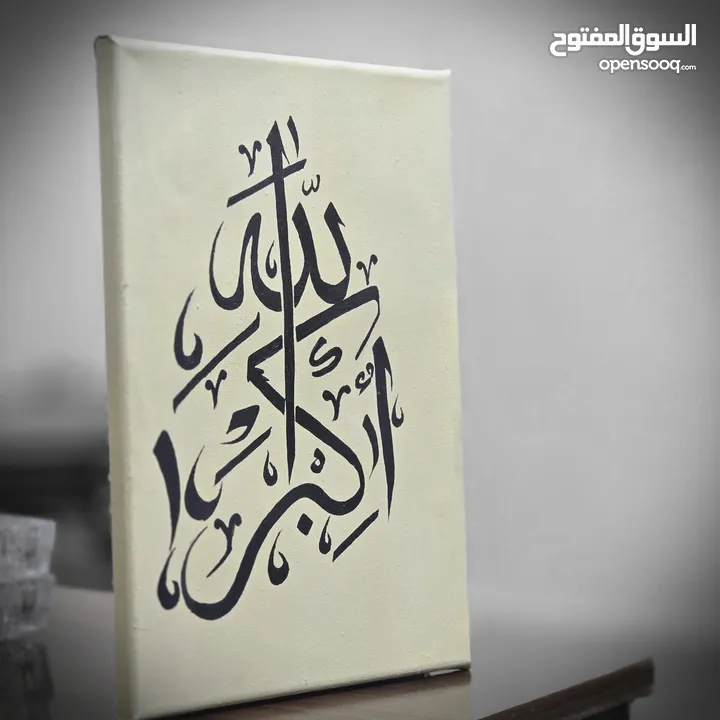 السوق المفتوح
opensooq.com
الله
أكبر
كبيرا